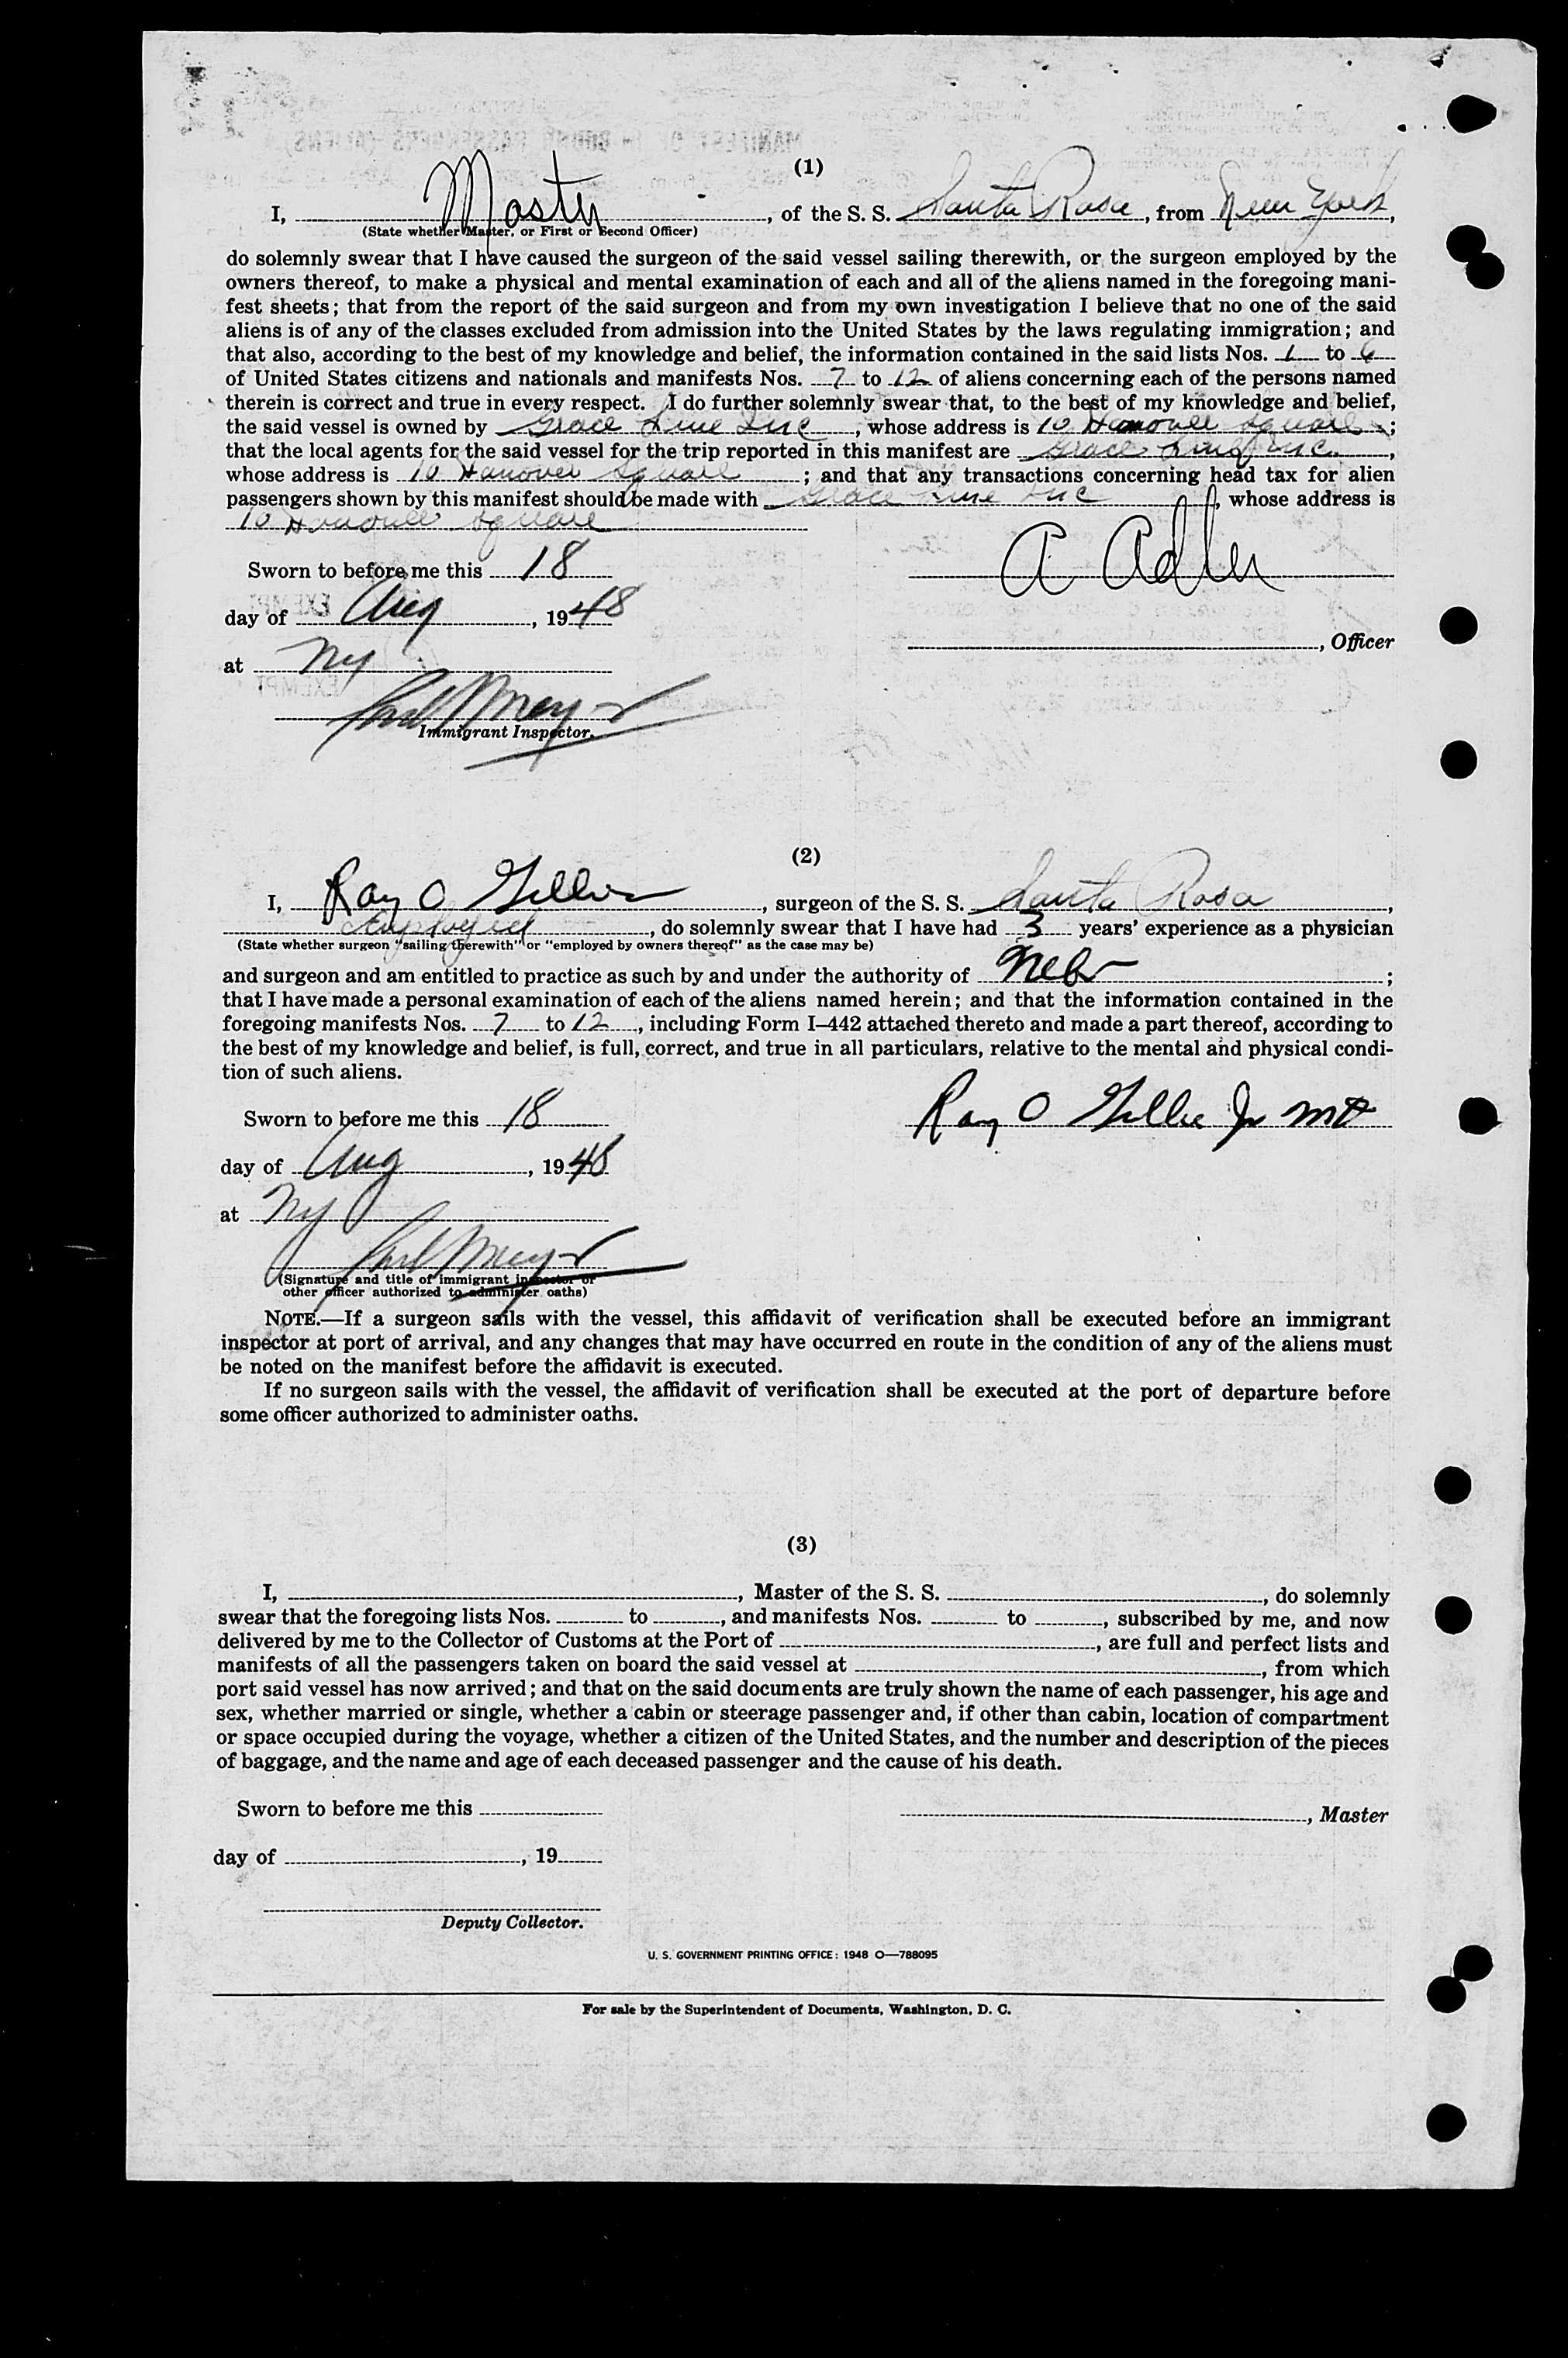 (1)
I, Master, of the S. S. Santa Rosa, from New York,
(State whether Master, or First or Second Officer)
do solemnly swear that I have caused the surgeon of the said vessel sailing therewith, or the surgeon employed by the
owners thereof, to make a physical and mental examination of each and all of the aliens named in the foregoing mani-
fest sheets; that from the report of the said surgeon and from my own investigation I believe that no one of the said
aliens is of any of the classes excluded from admission into the United States by the laws regulating immigration; and
that also, according to the best of my knowledge and belief, the information contained in the said lists Nos. 1 to 6
of United States citizens and nationals and manifests Nos. 7 to 12 of aliens concerning each of the persons named
therein is correct and true in every respect. I do further solemnly swear that, to the best of my knowledge and belief,
the said vessel is owned by Grace Line Inc, whose address is 10 Hanover Square;
that the local agents for the said vessel for the trip reported in this manifest are Grace Line Inc.,
whose address is 10 Hanover Square; and that any transactions concerning head tax for alien
passengers shown by this manifest should be made with Grace Line Inc, whose address is
10 Hanover Square
A Adler
Sworn to before me this 18
day of Aug, 1948
, Officer
at NY
Meyer
Immigrant Inspector.
(2)
I, Ray O, surgeon of the S. S. Santa Rosa,
Employed, do solemnly swear that I have had 3 years' experience as a physician
(State whether surgeon "sailing therewith" or "employed by owners thereof" as the case may be)
and surgeon and am entitled to practice as such by and under the authority of Nebr;
that I have made a personal examination of each of the aliens named herein; and that the information contained in the
foregoing manifests Nos. 7 to 12, including Form I–442 attached thereto and made a part thereof, according to
the best of my knowledge and belief, is full, correct, and true in all particulars, relative to the mental and physical condi-
tion of such aliens.
Sworn to before me this 18
Ray O Jr MD
day of Aug, 1948
at NY
Meyer
(Signature and title of immigrant inspector or
other officer authorized to administer oaths)
NOTE.—If a surgeon sails with the vessel, this affidavit of verification shall be executed before an immigrant
inspector at port of arrival, and any changes that may have occurred en route in the condition of any of the aliens must
be noted on the manifest before the affidavit is executed.
If no surgeon sails with the vessel, the affidavit of verification shall be executed at the port of departure before
some officer authorized to administer oaths.
(3)
I, , Master of the S. S. , do solemnly
swear that the foregoing lists Nos. to , and manifests Nos. to , subscribed by me, and now
delivered by me to the Collector of Customs at the Port of , are full and perfect lists and
manifests of all the passengers taken on board the said vessel at , from which
port said vessel has now arrived; and that on the said documents are truly shown the name of each passenger, his age and
sex, whether married or single, whether a cabin or steerage passenger and, if other than cabin, location of compartment
or space occupied during the voyage, whether a citizen of the United States, and the number and description of the pieces
of baggage, and the name and age of each deceased passenger and the cause of his death.
Sworn to before me this
, Master
day of , 19
Deputy Collector.
U. S. GOVERNMENT PRINTING OFFICE: 1948 O—788095
For sale by the Superintendent of Documents, Washington, D. C.